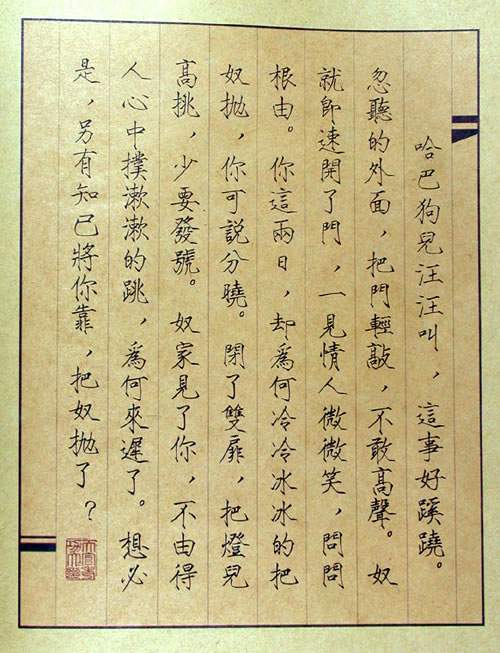 哈巴狗兒汪汪叫，這事好蹊蹺。
忽聽的外面，把門輕敲，不敢高聲。奴
就即速開了門，一見情人微微笑，問問
根由。你這兩日，却爲何冷冷冰冰的把
奴拋，你可説分曉。閉了雙扉，把燈兒
高挑，少要發號。奴家見了你，不由得
人心中撲漱漱的跳，爲何來遲了。想必
是，另有知已將你靠，把奴拋了？